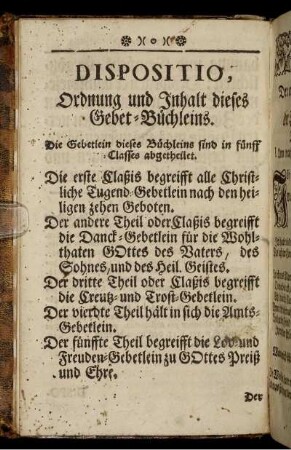 DISPOSITIO,
Ordnung und Inhalt dieses
Gebet-Büchleins.
Die Gebetlein dieses Büchleins sind in fünff
Classes abgetheilet.
Die erste Claßis begreifft alle Christ-
liche Tugend Gebetlein nach den hei-
ligen zehen Geboten.
Der andere Theil oder Claßis begreifft
die Danck-Gebetlein für die Wohl-
thaten GOttes des Vaters, des
Sohnes, und des Heil. Geistes.
Der dritte Theil oder Claßis begreifft
die Creutz- und Trost-Gebetlein.
Der vierdte Theil hält in sich die Ampts-
Gebetlein.
Der fünffte Theil begreifft die Lob- und
Freuden-Gebetlein zu GOttes Preiß
und Ehre.
Der